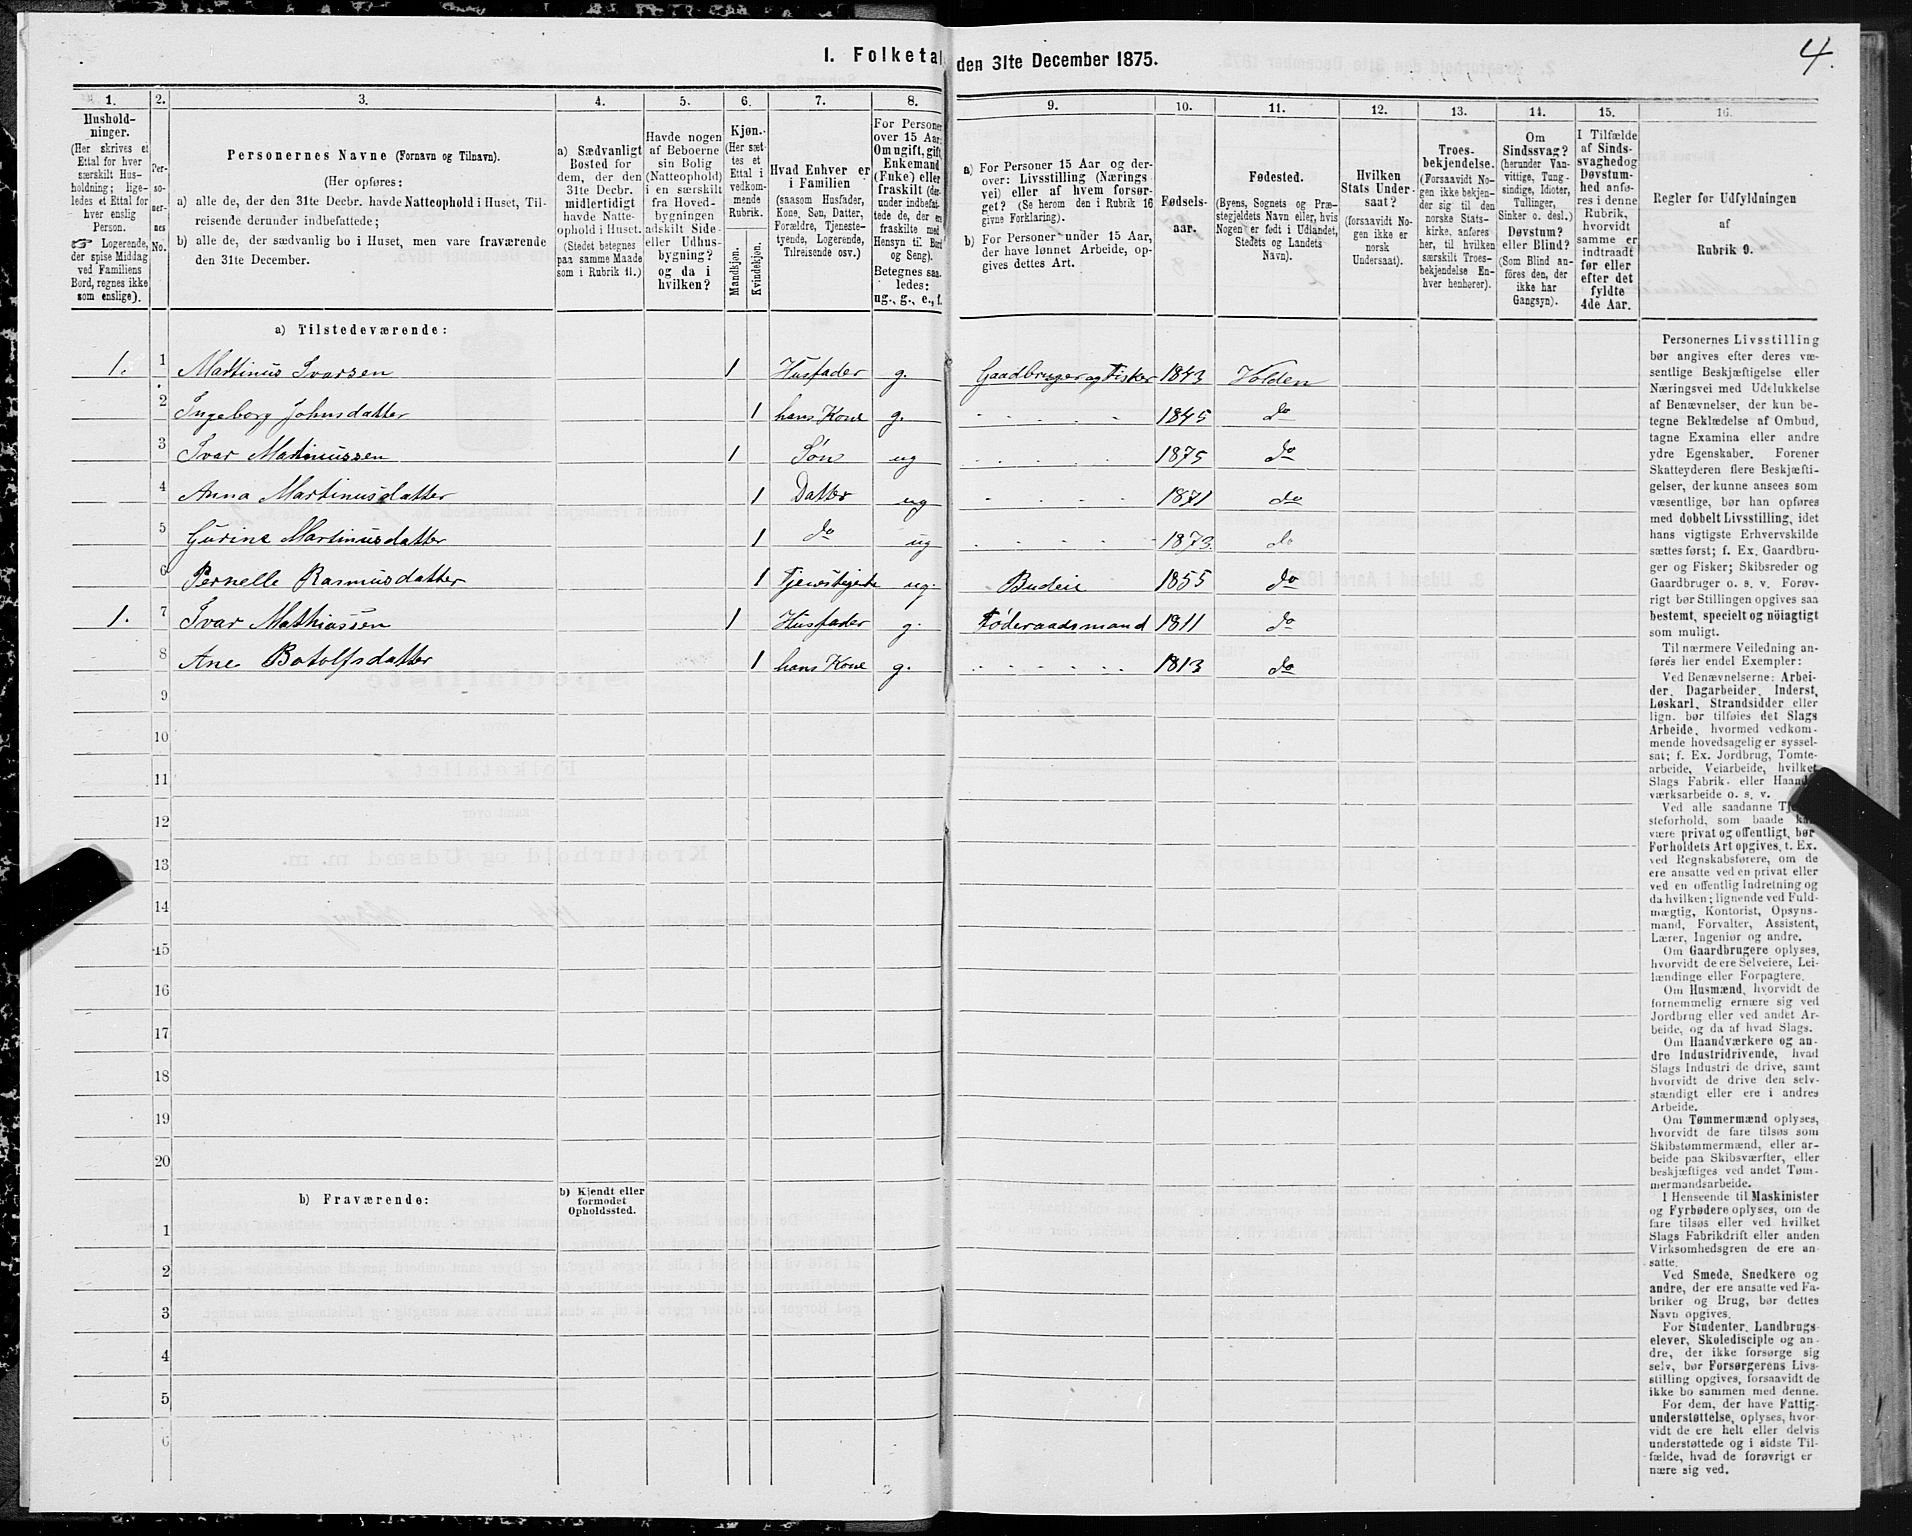 4.
I. Folketal den 31te December 1875.
1.
2.
3.
4.
5.
6.
7.
8.
9.
10.
11.
12.
13.
14.
15.
16.
Hushold-
ninger.
(Her skrives et
Ettal for hver
særskilt Hus-
holdning; lige-
ledes et Ettal for
hver enslig
Person.
☞ Logerende,
der spise Middag
ved Familiens
Bord, regnes ikke
som enslige).
Per-
so-
ner-
nes
No.
Personernes Navne (Fornavn og Tilnavn).
(Her opføres:
a) alle de, der den 31te Decbr. havde Natteophold i Huset, Til-
reisende derunder indbefattede;
b) alle de, der sædvanlig bo i Huset, men vare fraværende
den 31te December.
a) Sædvanligt
Bosted for
dem, der den
31te Decbr.
midlertidigt
havde Natte-
ophold i Huset.
(Stedet betegnes
paa samme Maade
som i Rubrik 11.)
Havde nogen
af Beboerne
sin Bolig
(Natteophold)
i en særskilt
fra Hoved-
bygningen
adskilt Side-
eller Udhus-
bygning?
og da i
hvilken?
Kjøn.
(Her sæt-
tes et
Ettal i
vedkom-
mende
Rubrik.
Mandkjøn.
Kvindekjøn.
Hvad Enhver er
i Familien
(saasom Husfader,
Kone, Søn, Datter,
Forældre, Tjeneste-
tyende, Logerende,
Tilreisende osv.)
For Personer
over 15 Aar:
Om ugift, gift,
Enkemand
(Enke) eller
fraskilt (der-
under indbefat-
tede de, der ere
fraskilte med
Hensyn til Bord
og Seng).
Betegnes saa-
ledes:
ug., g., e., f.
a) For Personer 15 Aar og der-
over: Livsstilling (Nærings-
vei) eller af hvem forsør-
get? (Se herom den i Rubrik 16
givne Forklaring).
b) For Personer under 15 Aar,
der have lønnet Arbeide, op-
gives dettes Art.
Fødsels-
aar.
Fødested.
(Byens, Sognets og Præ-
stegjeldets Navn eller, hvis
Nogen er født i Udlandet,
Stedets og Landets
Navn).
Hvilken
Stats Under-
saat?
(forsaavidt No-
gen ikke er
norsk
Undersaat).
Troes-
bekjendelse.
(Forsaavidt No-
gen ikke bekjen-
der sig til den
norske Stats-
kirke, anføres
her, til hvilken
særskilt Troes-
bekjendelse En-
hver henhører).
Om
Sindssvag?
(herunder Van-
vittige, Tung-
sindige, Idioter,
Tullinger,
Sinker o. desl.)
Døvstum?
eller Blind?
(Som Blind an-
føres den, der
ikke har
Gangsyn).
I Tilfælde
af Sinds-
svaghed og
Døvstum-
hed anfø-
res i denne
Rubrik,
hvorvidt
samme er
indtraadt
før eller
efter det
fyldte
4de Aar.
Regler for Udfyldningen
af
Rubrik 9.
a) Tilstedeværende:
1. 1 Martinus Ivarsen 1 Husfader g. Gaardbruger og Fisker 1843 Volden
2 Ingeborg Johnsdatter 1 hans Kone g. 1845 do
3 Ivar Martinussen 1 Søn ug 1875 do
4 Anna Martinusdatter 1 Datter ug 1871 do
5 Gurine Martinusdatter 1 do ug 1873. do
6 Pernelle Rasmusdatter 1 Tjenestejente ug. Budeie 1855 do
1. 7 Ivar Mathiassen 1 Husfader g. Føderaadsmand 1811 do
8 Ane Botolfsdatter 1 hans Kone g. 1813 do
9
10
11
12
13
14
15
16
17
18
19
20
b) Fraværende:
b) Kjendt eller
formodet
Opholdssted.
1
2
3
4
5
6
Personernes Livsstilling
bør angives efter deres væ-
sentlige Beskjæftigelse eller
Næringsvei med Udelukkelse
af Benævnelser, der kun be-
tegne Beklædelse af Ombud,
tagne Examina eller andre
ydre Egenskaber. Forener
Skatteyderen flere Beskjæfti-
gelser, der kunne ansees som
væsentlige, bør han opføres
med dobbelt Livsstilling, idet
hans vigtigste Erhvervskilde
sættes først; f. Ex. Gaardbru-
ger og Fisker; Skibsreder og
Gaardbruger o. s. v. Forøv-
rigt bør Stillingen opgives saa
bestemt, specielt og nøiagtigt
som muligt.
Til nærmere Veiledning an-
føres her endel Exempler:
Ved Benævnelserne: Arbei-
der, Dagarbeider, Inderst,
Løskarl, Strandsidder eller
lign. bør tilføies det Slags
Arbeide, hvormed vedkom-
mende hovedsagelig er syssel-
sat; f. Ex. Jordbrug, Tomte-
arbeide, Veiarbeide, hvilket
Slags Fabrik- eller Haand-
værksarbeide o. s. v.
Ved alle saadanne Tje-
steforhold, som baade kan
være privat og offentligt, bør
Forholdets Art opgives, t. Ex.
ved Regnskabsførere, om de
ere ansatte ved en privat eller
ved en offentlig Indretning og
da hvilken; lignende ved Fuld-
mægtig, Kontorist, Opsyns-
mand, Forvalter, Assistent,
Lærer, Ingeniør og andre.
Om Gaardbrugere oplyses,
hvorvidt de ere Selveiere, Lei-
lændinge eller Forpagtere.
Om Husmænd, hvorvidt de
fornemmelig ernære sig ved
Jordbrug eller ved andet Ar-
beide, og da af hvad Slags.
Om Haandværkere og an-
dre Industridrivende, hvad
Slags Industri de drive, samt
hvorvidt de drive den selv-
stændigt eller ere i andres
Arbeide.
Om Tømmermænd oplyses,
hvorvidt de fare tilsøs som
Skibstømmermænd, eller ar-
beide paa Skibsværfter, eller
beskjæftiges ved andet Tøm-
mermandsarbeide.
I Henseende til Maskinister
og Fyrbødere oplyses, om de
fare tilsøs eller ved hvilket
Slags Fabrikdrift eller anden
Virksomhedsgren de ere an-
satte.
Ved Smede, Snedkere og
andre, der ere ansatte ved Fa-
briker og Brug, bør dettes
Navn opgives.
For Studenter, Landbrugs-
elever, Skoledisciple og an-
dre, der ikke forsørge sig
selv, bør Forsørgerens Livs-
stilling opgives, forsaavidt de
ikke bo sammen med denne.
For dem, der have Fattig-
understøttelse, oplyses, hvor-
vidt de ere helt eller delvis
understøttede og i sidste Til-
fælde, hvad de forøvrigt er
nære sig ved.